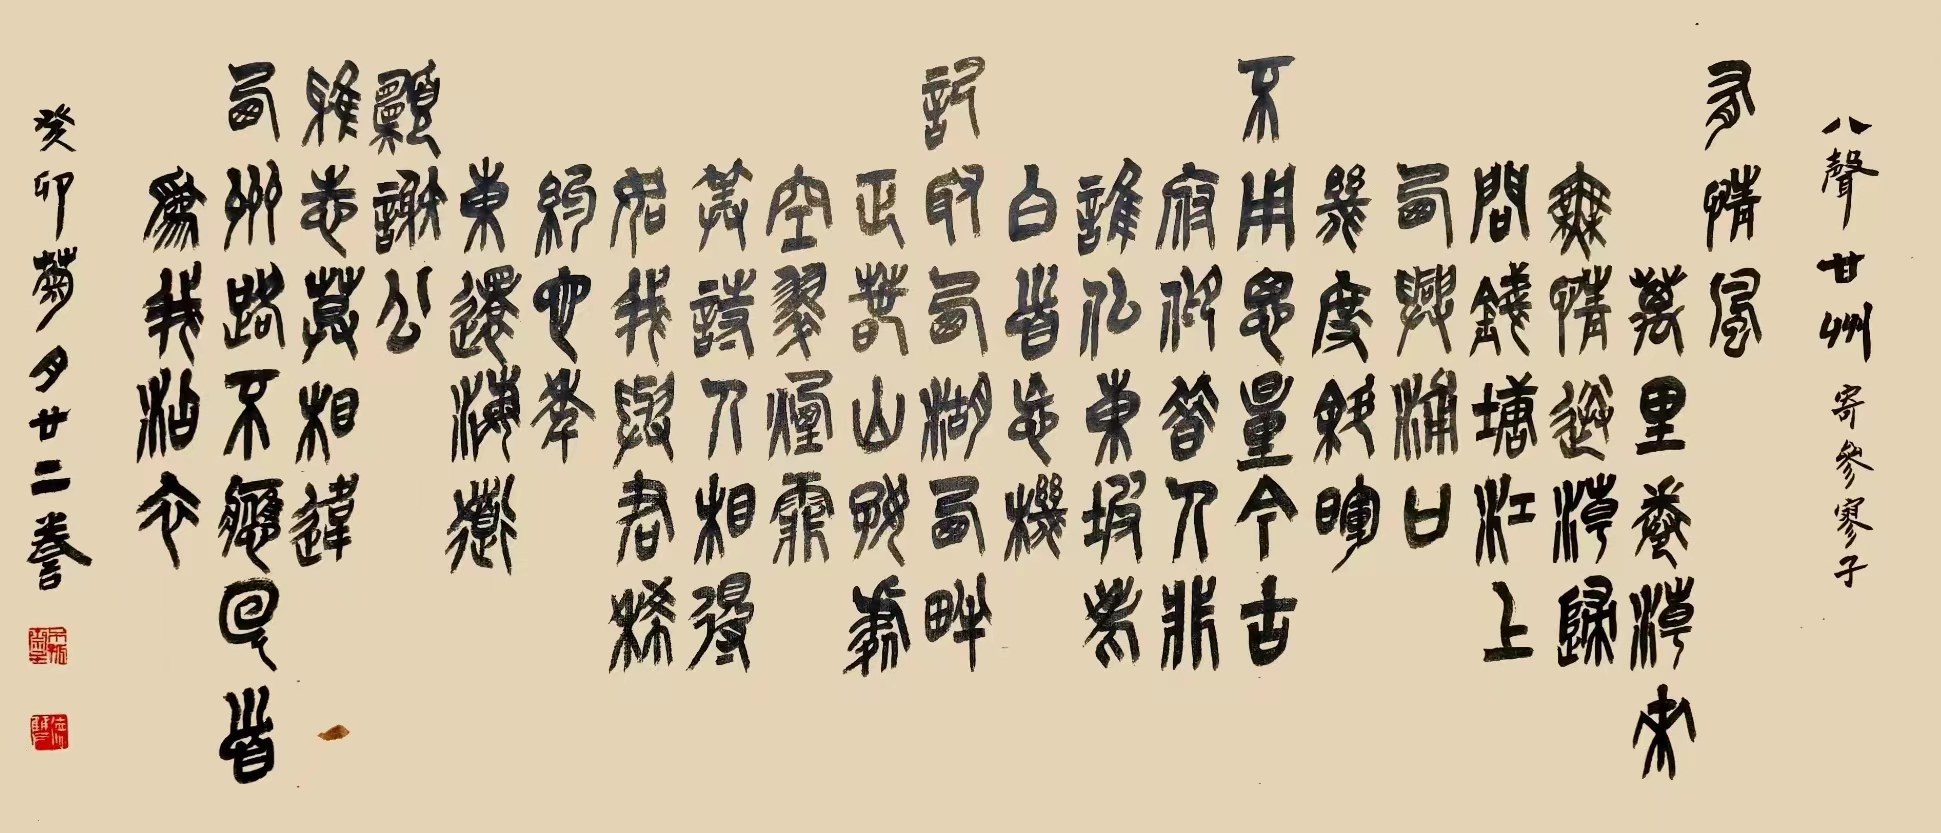 八聲甘州 寄參寥子
有情風
萬里卷潮來
無情送潮歸
問錢塘江上
西興浦口
幾度斜暉
不用思量今古
俯仰昔人非
誰似東坡老
白首忘機
記取西湖西畔
正春山好處
空翠煙霏
算詩人相得
如我與君稀
約他年
東還海道
願謝公
雅志莫相違
西州路不應回首
為我沾衣
癸卯菊月廿二誊